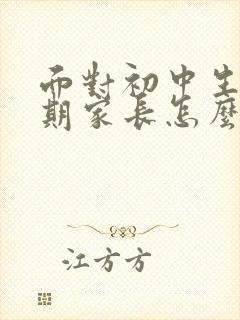 而對初中生
期家長怎麼
江方方